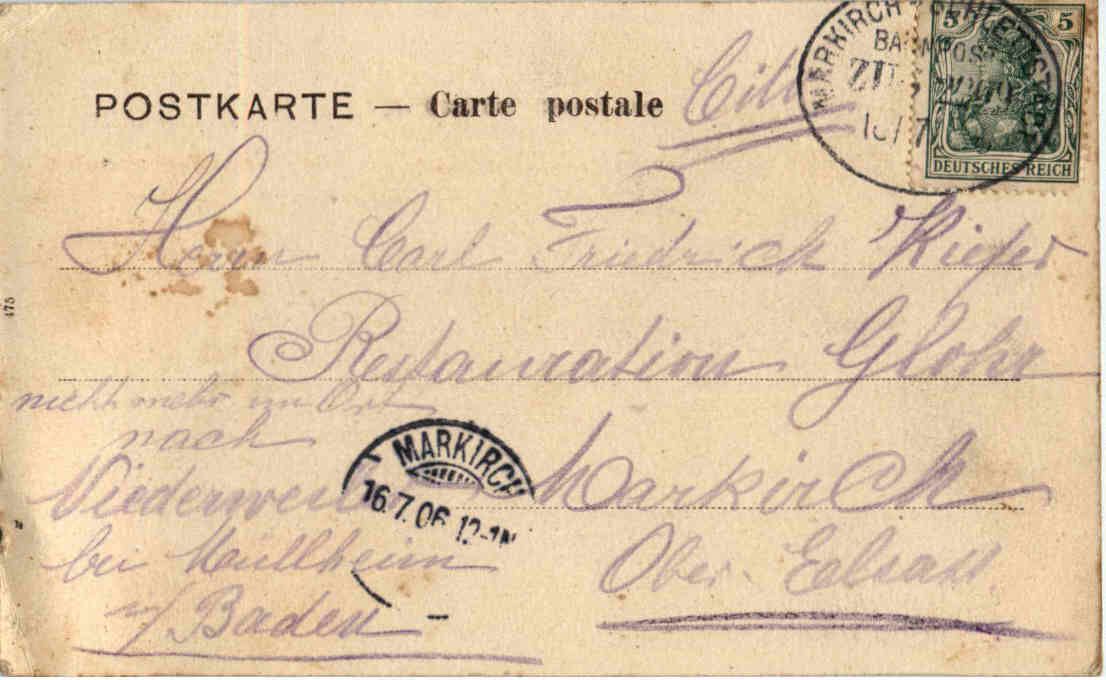 POSTKARTE — Carte postale
MARKIRCH - SCHLETTSTADT
BAHNPOST
ZUG
5 5
DEUTSCHES REICH
Herrn Carl Friedrich Kiefer
Restauration Glohr
475
nicht mehr im Ort
nach
MARKIRCH
16.7.06 12-1N
Niederweiler Markirch
bei Müllheim
Ober-Elsass.
i/Baden